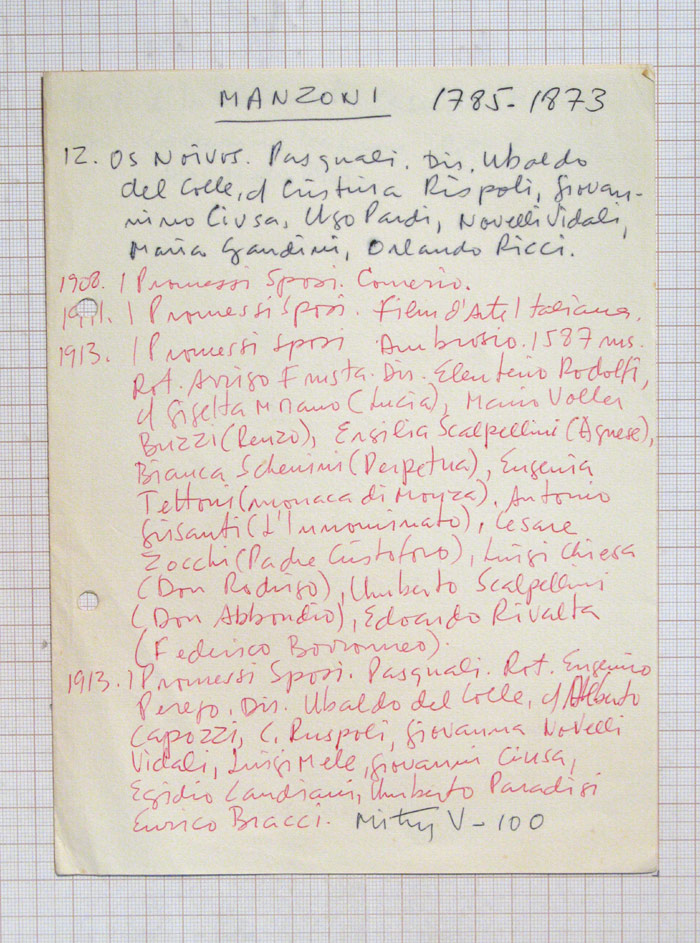 MANZONI 1785-1873
12. Os Noivos. Pasquali. Dir. Ubaldo
del Colle, d Cristina Rispoli, Giovan-
nino Ciusa, Ugo Pardi, Novelli Vidali,
Maria Gandini, Orlando Ricci.
1908. I Promessi Sposi. Comerio.
1911. I Promessi Sposi. Film d'Arte Italiana.
1913. I Promessi Sposi Ambrosio. 1587 ms.
Rot. Arrigo Frusta. Dir. Eleuterio Rodolfi,
d Giselta Morano (Lucia), Mario Voller
Buzzi (Renzo), Ersilia Scalpellini (Agnese),
Bianca Schinini (Perpetua), Eugenia
Tettoni (monaca di Monza), Antonio
Grisanti (L'Innominato), Cesare
Zocchi (Padre Cristoforo), Luigi Chiesa
(Don Rodrigo), Umberto Scalpellini
(Don Abbondio), Edoardo Rivalta
(Federico Borromeo).
1913. I Promessi Sposi. Pasquali. Rot. Eugenio
Perego. Dir. Ubaldo del Colle, d Alberto
Capozzi, C. Ruspoli, Giovanna Novelli
Vidali, Luigi Mele, Giovanni Ciusa,
Egidio Candiani, Umberto Paradisi
Enrico Bracci. Mitry V-100